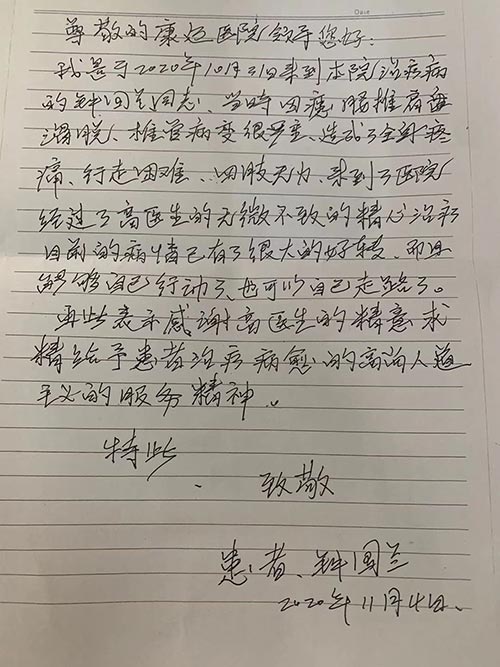 Date
尊敬的康达医院领导您好:
我是于2020年10月31日来到本院治疗病
的钟国兰同志、当时因患腰椎间盘
滑脱、椎管病变很严重、造成了全身疼
痛、行走困难、四肢无力、来到了医院
经过了高医生的无微不致的精心治疗
目前的病情已有了很大的好转、而且
能够自己行动了、也可以自己走路了。
再此表示感谢高医生的精意求
精给予患者治疗病愈的高尚人道
主义的服务精神。
特此
致敬
患者、钟国兰
2020年11月4日、